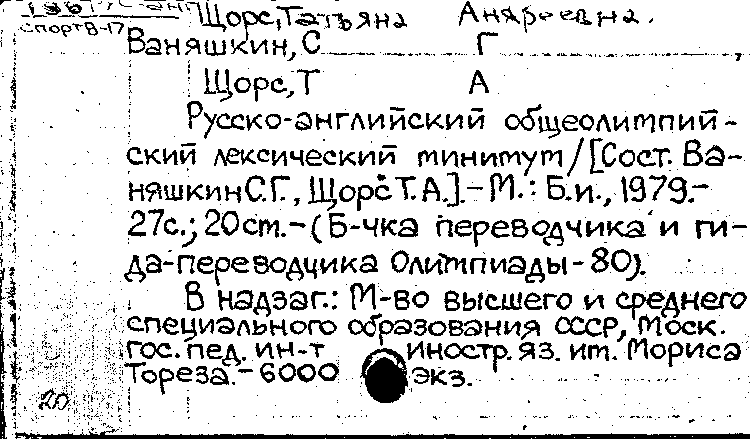 Щорс, Татьяна Андреевна.
спорт В-17
Ваняшкин, С Г
Щорс, Т А
Русско-английский общеолимпий-
ский лексический минимум / [Сост. Ва-
няшкин С.Г., Щорс Т.А.]. - М.: Б.и., 1979.-
27с.; 20см. - (Б-чка переводчика и ги-
да-переводчика Олимпиады-80).
В надзаг.: М-во высшего и среднего
специального образования СССР, Моск.
гос. пед. ин-т иностр. яз. им. Мориса
Тореза. - 6000 экз.
20